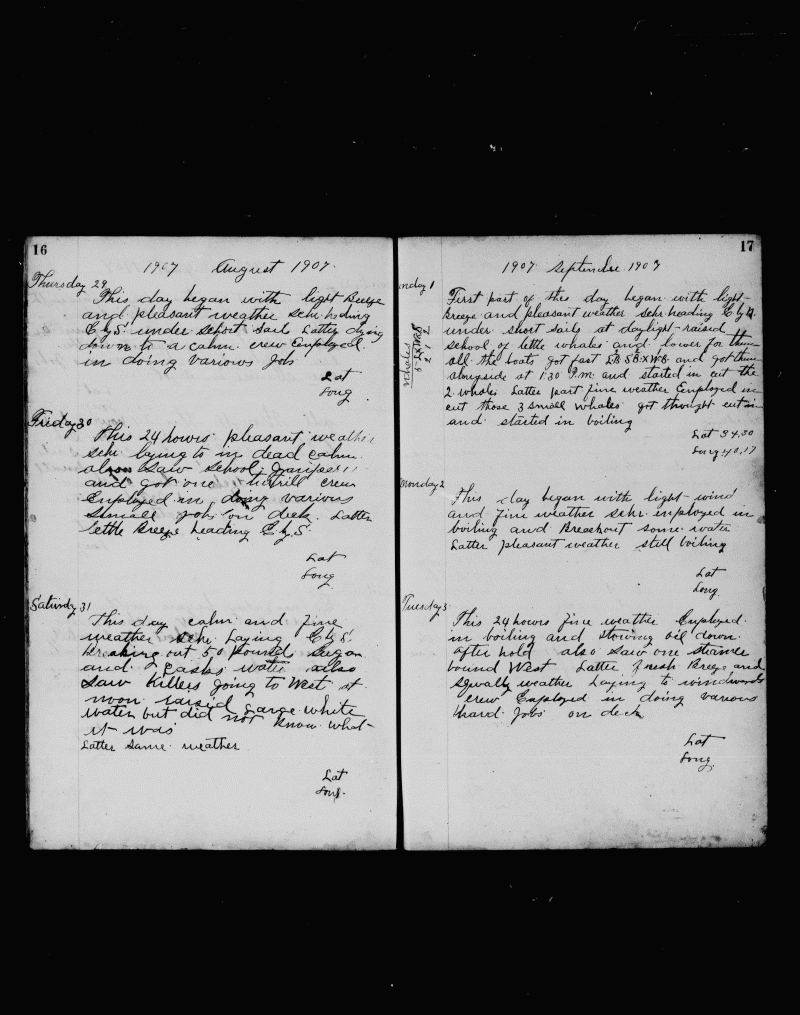 16
1907 August 1907.
Thursday 29
This day began with light Breeze
and pleasant weather Schr heding
E by S. under short sail Latter dying
down to a calm. crew Employed
in doing varioús Job
Lat
Long
Friday 30
This 24 hours pleasant weather
schr laying to in dead calm.
also saw School
and got one crew
Employed in doing various
small jobs on deck. Latter
lettle Breeze heading E. by S.
Lat
Long
Saturday 31
This day calm and fine
weather Schr Laying E by S.
Breaking out 50 Pound Sugar
and 2 casks water also
Saw Killers going to West at
noon raised Large white
water but did not know what
it was
Latter Same weather
Lat
Long.
17
1907 September 1907
unday 1
First part of this day began with light
Breeze and pleasant weather schr heading E by S.
under short sails at daylight raised
school of lettle whales and lower for them
all the boats got fast LB. SB. X W.B. and got them
alongside at 1.30 P.M. and started in cut the
2 whales Latter part fine weather Employed in
cut those 3 small whales got throught cut in
and started in boiling
Lat 34.30
Long 40.17
whales
2 1 2
Monday 2
This day began with light wind
and fine weather Schr. employed in
boiling and Breakout some water
Latter pleasant weather still boiling
Lat
Long.
Tuesday 3
This 24 hours fine weather Employed.
in boiling and stowing oil down
after hold also saw one steamer
bound West Latter fresh Breeze and
squally weather Laying to windward
crew Employed in doing various
hard Jobs on deck
Lat
Long.